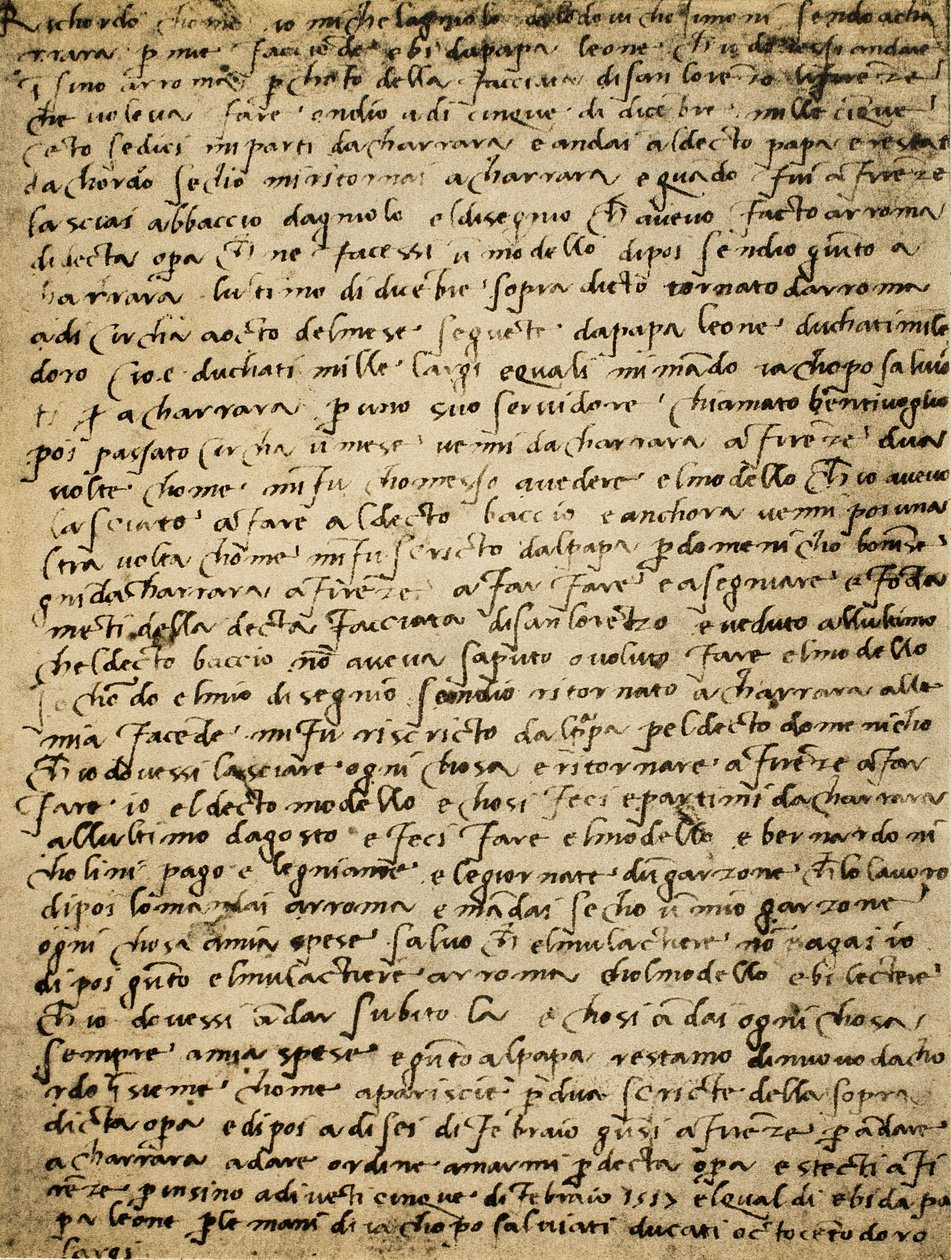 Richordo chome io michelagniolo di lodovicho simoni sendo acha
rrara p mie faciēde ebi da papa leone ch io dovessi andare
īsino arroma p chōto della facciata di san lorēzo di firēze
che voleva fare ondio adi cinque di dicēbre mille cīque
cēto sedici mi parti da charrara e andai al decto papa e restai
dachordo sechio mi ritornai a charrara e quādo fui a firēze
lasciai abbaccio dagniolo el disegnio ch avevo facto arroma
di decta opa ch ne facessi ū modello dipoi sēndio giūto a
charrara lultimo di dicēbre sopra dicto tornato da rroma
adi circha aocto del mese seguēte da papa leone duchati mile
doro cioe duchati mille largi e quali mi mādo iachopo salvia
ti ī a charrara p uno suo servidore chiamato bentivoglio
poi passato circha ū mese venni da charrara a firēze dua
volte chome mi fu chomesso a vedere el modello ch io avevo
lasciato a fare al decto baccio e anchora venni poi una
ltra volta chome mi fu scricto dal papa p domenicho bonīse
gni da charrara a firēze a far fare e a segniare e fōda
mēti della decta facciata di san lorēzo e veduto allultimo
che l decto baccio nō aveva saputo o voluto fare el modello
sechōdo el mio disegnio sendio ritornato a charrara alle
mia facēde mi fu riscricto dal papa pel decto domenicho
ch io dovessi lasciare ogni chosa e ritornare a firēze a far
fare io el decto modello e chosi feci e partimi da charrara
allultimo dagosto e feci fare el modello e bernardo ni
cholini pago e legniame e le giornate dūgarzone ch lo lavoro
dipoi lo mandai arroma e mādai secho ū mio garzone
ogni chosa a mia spese salvo ch el mulactiere nō pagai io
dipoi giūto el mulactiere arroma chol modello ebi lectere
ch io dovessi ādar subito la e chosi ādai ogni chosa
sempre a mia spese e giūto al papa restamo di nuovo dacho
rdo īsieme chome aparisce p dua scricte della sopra
dicta opa e dipoi adi sei di febraio giūsi a firēze p ādare
a charrara a dare ordine a marmi p decta opa e stecti a fi
rēze p insino adi vēti cinque di febraio 1517 el qual di ebi da pa
pa leone p le mani di iachopo salviati ducati octocēto doro
largi